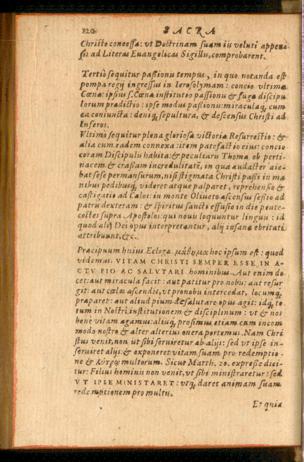 120 SACRA
Christo concessa: ut Doctrinam suam iis veluti appen-
sis ad Literas Euangelicas Sigillis, comprobarent.
Tertio sequitur passionis tempus, in quo notanda est
pompa regij ingressus in Ierosolymam: concio ultima
Cœnæ: ipsius S. Cœnæ institutio passionis & fuga discipu-
lorum prædictio: ipse modus passionis: miracula, cum
ea coniuncta: deniq, sepultura, & descensus Christi ad
Inferos.
Ultimo sequitur plena gloriosa victoria Resurrectio: &
alia cum eadem connexa: item patefactio eius: concio
coram Discipulis habita: & peculiaris Thomæ ob perti-
nacem & crassam incredulitatem, in qua audacter aie-
bat sese permansurum, nisi stigmata Christi passi in ma
nibus pedibusq, videret atque palparet, reprehensio &
castigatio ad Calci: in monte Oliveto ascensus sessio ad
patris dexteram: & spiritus sancti effusio in die pente-
costes supra Apostolos: qui novis loquuntur linguis: id
quod alij Dei opus interpretantur, alij insanæ ebrietati
attribuunt, &c.
Præcipuum huius Eclogæ hoc ipsum est: quod
videmus. VITAM CHRISTI SEMPER ESSE, IN A-
CTU PIO AC SALUTARI hominibus. Aut enim do-
cet: aut miracula facit: aut patitur pro nobis: aut resur
git: aut cœlos ascendit, ut pronobis intercedat, locumq,
præparet: aut aliud pium & salutare opus agit: idq, to-
tum in Nostri institutionem & disciplinam: ut & nos
bene vitam agamus: aliisq, prosimus, etiam cum incom
modo nostro & alter alterius onera portemus. Nam Chri
stus venit, non ut sibi serviretur ab alijs: sed ut ipse in-
serviret alijs: & exponeret vitam suam pro redemptio-
ne & λύτρῳ multorum. Sicut Matth. 20. expresse dici-
tur: Filius hominis non venit, ut sibi ministraretur: sed
UT IPSE MINISTRARET: utq, daret animam suam
redemptionem pro multis.
Et quia